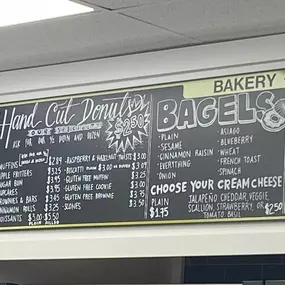 BAKERY
Hand Cut Donuts
$2.50
ASK FOR OUR ½ DOZEN AND DOZEN
BAGELS &
PLAIN
ASIAGO
SESAME
BLUEBERRY
CINNAMON RAISIN
WHEAT
EVERYTHING
FRENCH TOAST
ONION
SPINACH
MUFFINS $2.89
APPLE FRITTERS $3.25
SUGAR BUN $3.25
CUPCAKES
BROWNIES & BARS $3.45
CINNAMON ROLLS $3.25
CROISSANTS $3.00 $5.50
PLAIN FILLED
RASPBERRY & HAZELNUT TWISTS $3.00
BISCOTTI
GLUTEN FREE MUFFIN $3.25
GLUTEN FREE COOKIE $3.00
GLUTEN FREE BROWNIE $3.75
SCONES $3.50
CHOOSE YOUR CREAM CHEESE
PLAIN
$1.75
JALAPEÑO CHEDDAR, VEGGIE,
SCALLION, STRAWBERRY, OR
TOMATO BASIL
$2.50